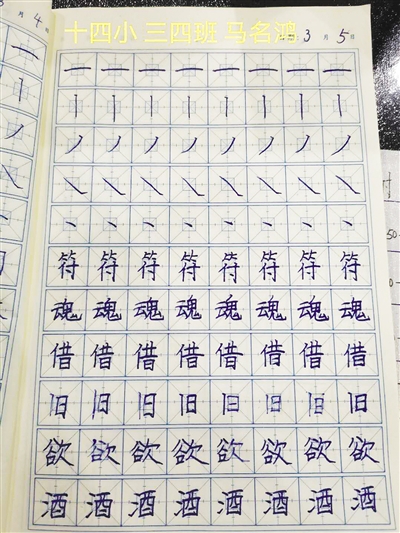 十四小 三四班 马名鸿
3月5日
月4
一一一一一一一一
丨丨丨丨丨丨丨丨
丿丿丿丿丿丿丿丿
㇏㇏㇏㇏㇏㇏㇏㇏
丶丶丶丶丶丶丶丶
符符符符符符符符
魂魂魂魂魂魂魂魂
借借借借借借借借
旧旧旧旧旧旧旧旧
欲欲欲欲欲欲欲欲
酒酒酒酒酒酒酒酒